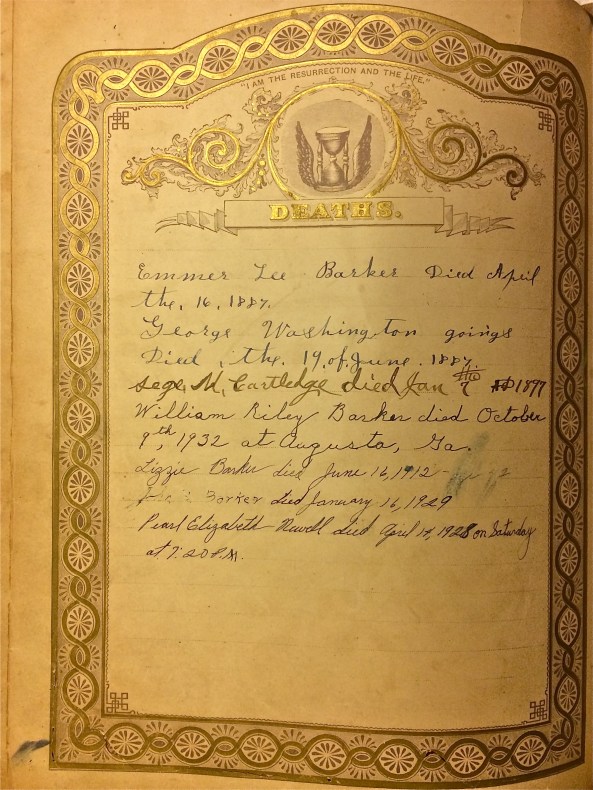 "I AM THE RESURRECTION AND THE LIFE."
DEATHS.
Emmer Lee Barker Died April
the, 16, 1887.
George Washington goings
Died, the. 19, of June. 1887.
M, Cartledge died Jan the 7 AD 1897
William Riley Barker died October
9th, 1932 at Augusta, Ga.
Lizzie Barker died June 16, 1912
Barker died January 16, 1929
Pearl Elizabeth Newell died April 14, 1928 on Saturday
at 7:20 P.M.